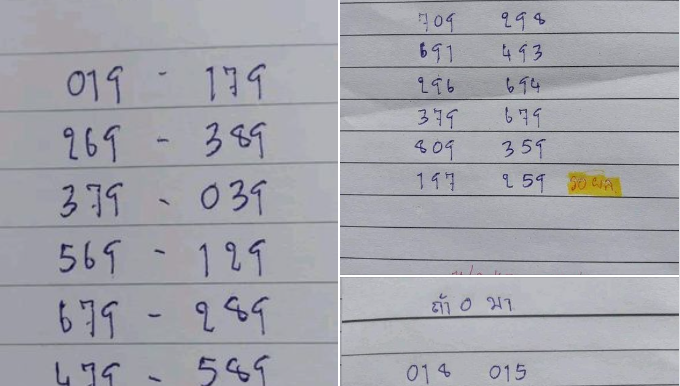 019 - 179
269 - 389
379 - 039
569 - 129
679 - 289
479 - 589
709 298
691 493
296 694
379 679
809 359
197 259 รอผล
ถ้า 0 มา
018 015